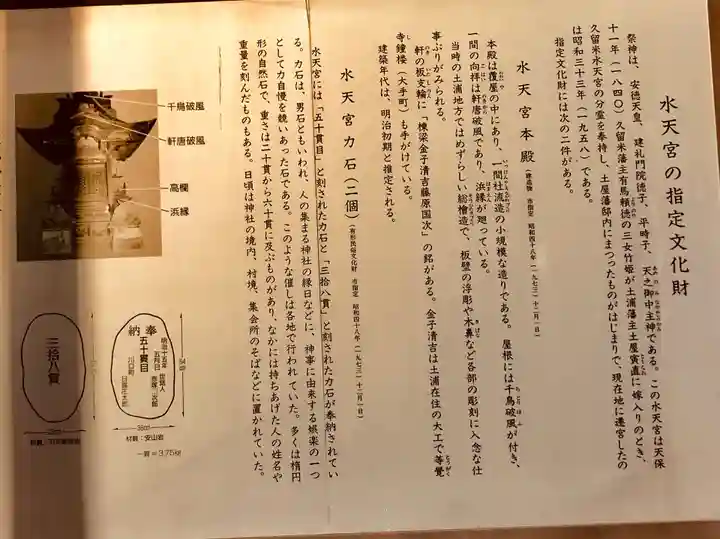 水天宮の指定文化財
祭神は、安徳天皇、建礼門院徳子、平時子、天之御中主神である。この水天宮は天保
十一年（一八四〇）久留米藩主有馬頼徳の三女竹姫が土浦藩主土屋寅直に嫁入りのとき、
久留米水天宮の分霊を奉持し、土屋藩邸内にまつったものがはじまりで、現在地に遷宮したの
は昭和三十三年（一九五八）である。
指定文化財には次の二件がある。
水天宮本殿（建造物 市指定 昭和四十八年（一九七三）十二月一日）
本殿は覆屋の中にあり、一間社流造の小規模な造りである。屋根には千鳥破風が付き、
一間の向拝は軒唐破風であり、浜縁が廻っている。
当時の土浦地方ではめずらしい総檜造で、板壁の浮彫や木鼻など各部の彫刻に入念な仕
事ぶりがみられる。
軒の板支輪に「棟梁金子清吉藤原国次」の銘がある。金子清吉は土浦在住の大工で等覚
寺鐘楼（大手町）も手がけている。
建築年代は、明治初期と推定される。
水天宮力石（二個）（有形民俗文化財 市指定 昭和四十八年（一九七三）十二月一日）
水天宮には「五十貫目」と刻された力石と「三拾八貫」と刻された力石が奉納されてい
る。力石は、男石ともいわれ、人の集まる神社の縁日などに、神事に由来する娯楽の一つ
として力自慢を競いあった石である。このような催しは各地で行われていた。多くは楕円
形の自然石で、重さは二十貫から六十貫に及ぶものがあり、なかには持ちあげた人の姓名や
重量を刻んだものもある。日頃は神社の境内、村境、集会所のそばなどに置かれていた。
千鳥破風
軒唐破風
高欄
浜縁
奉納
五十貫目
明治十五年
五月日
世話人
川口町
54cm
38cm
材質：安山岩
一貫＝3.75kg
三拾八貫